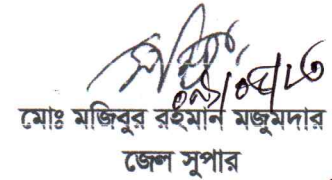 মোঃ মজিবুর রহমান মজুমদার
জেল সুপার